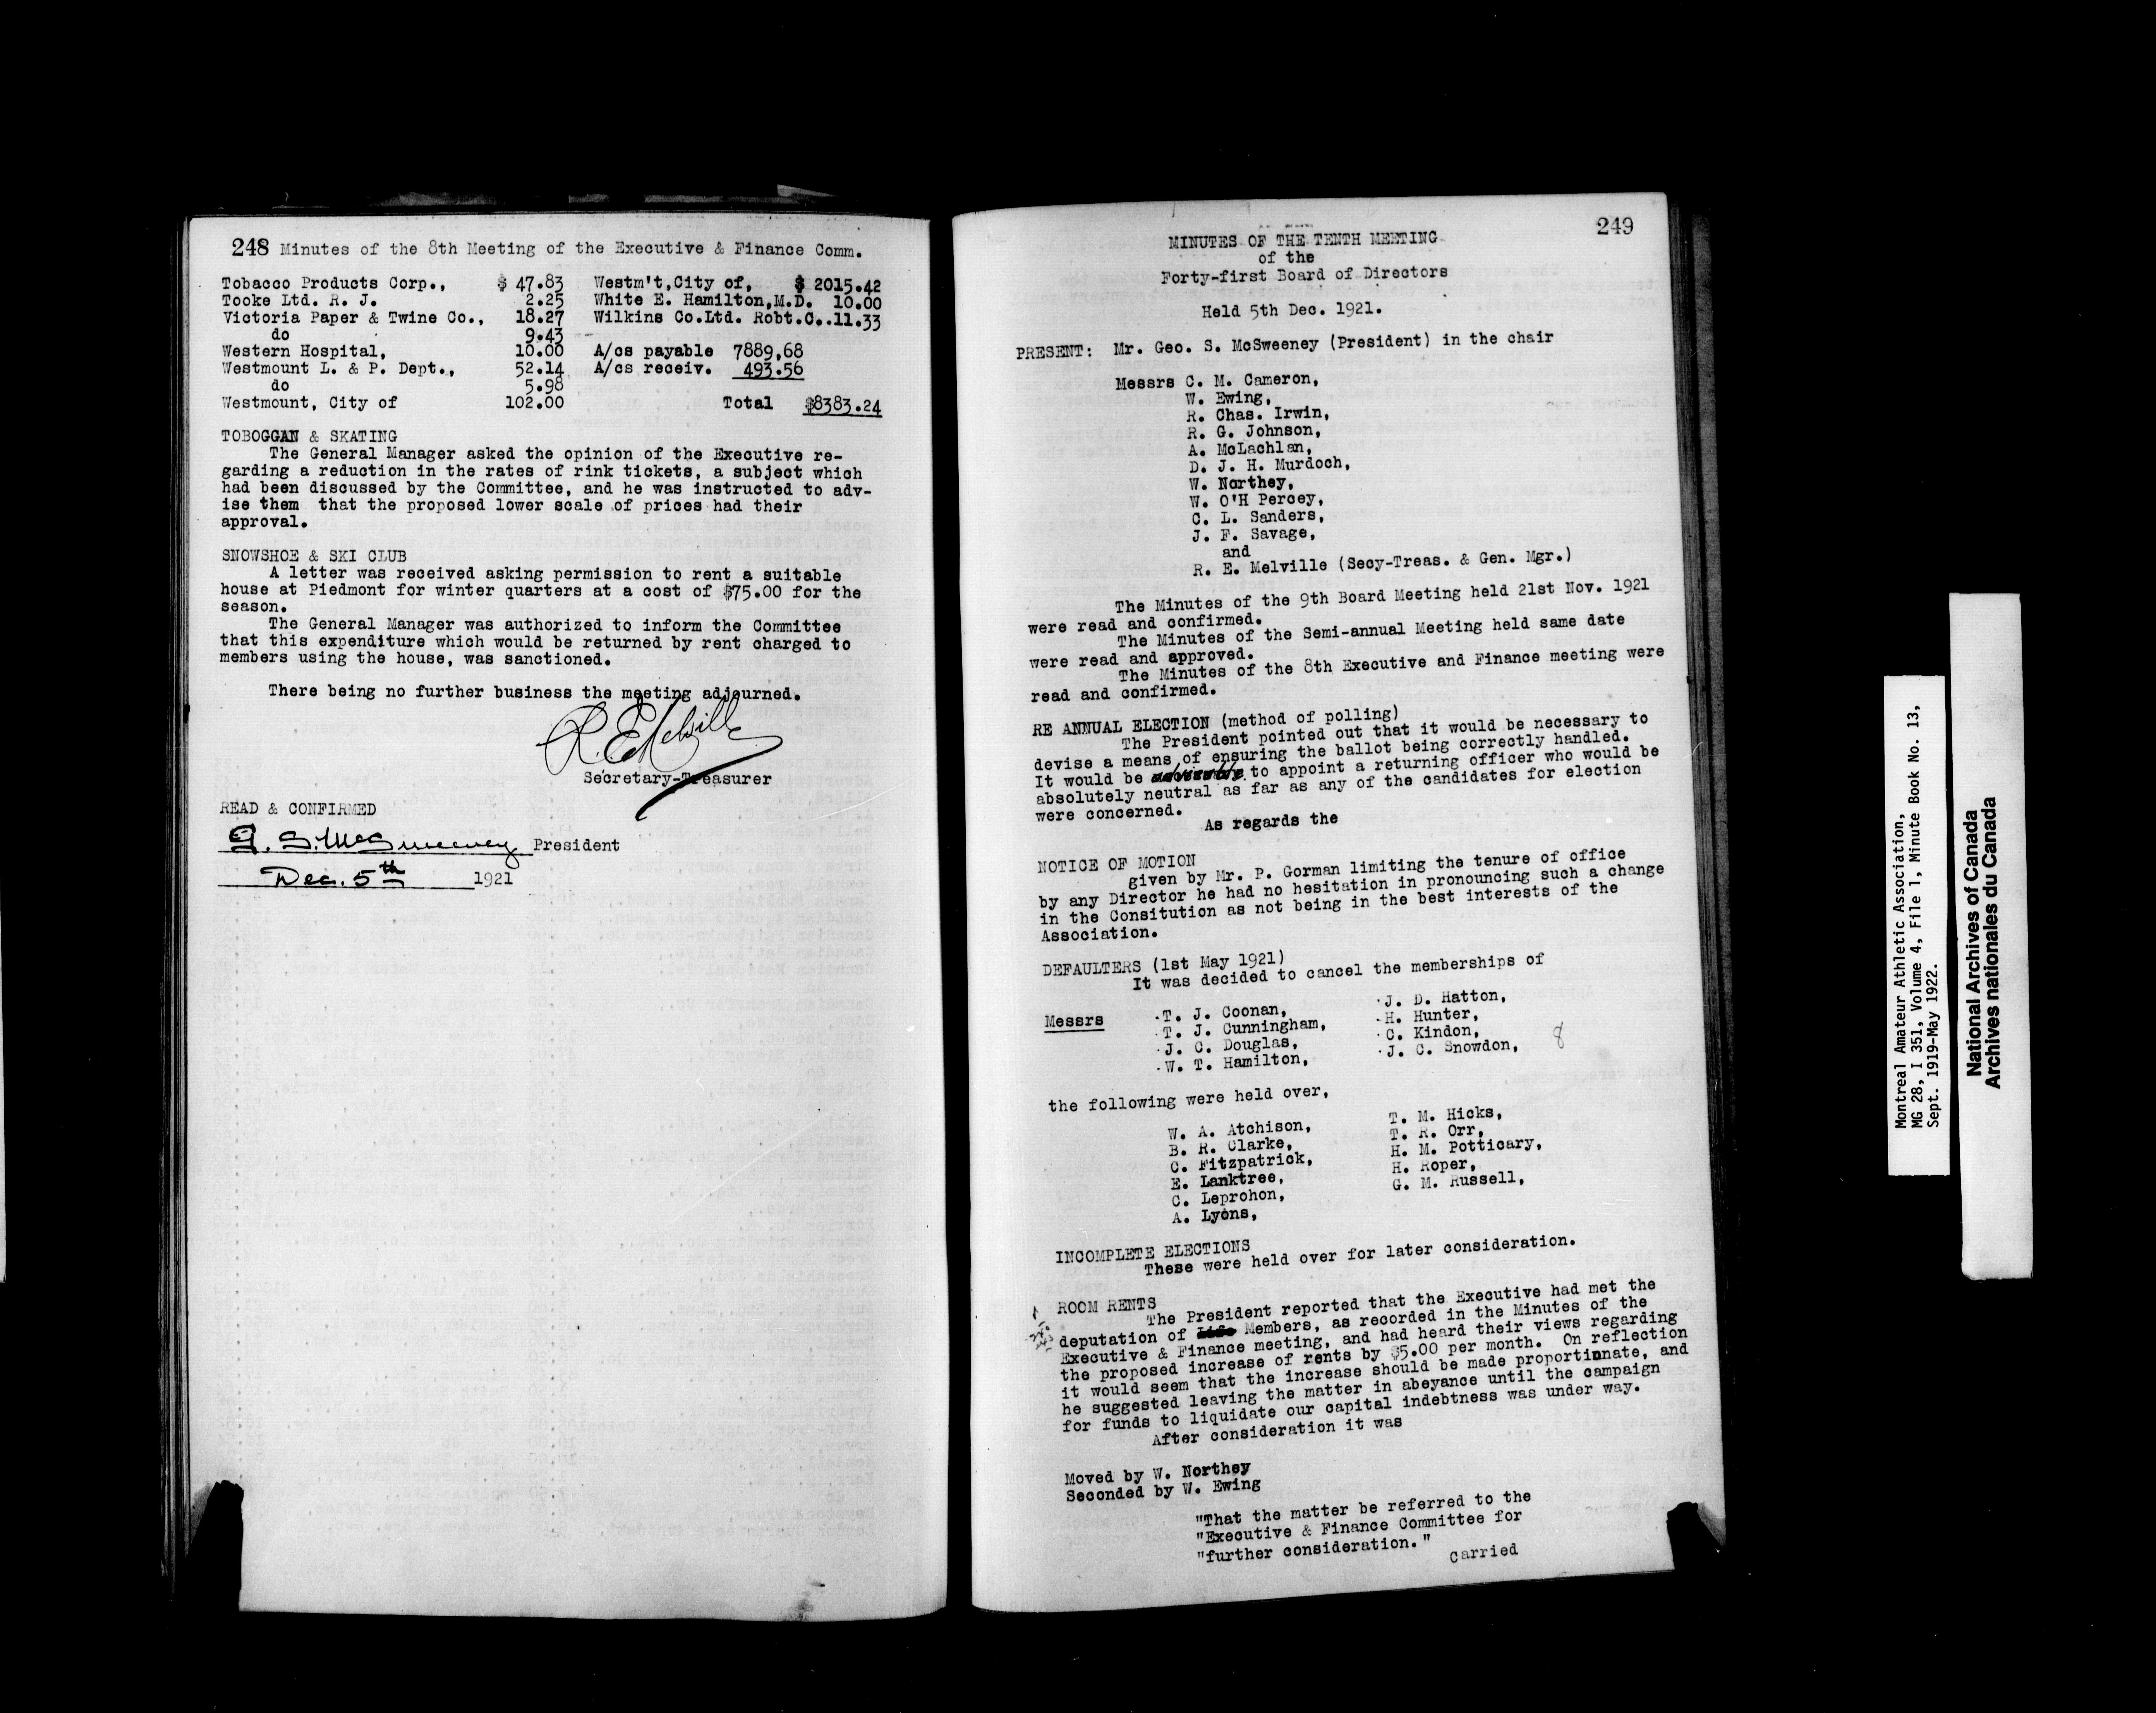 248 Minutes of the 8th Meeting of the Executive & Finance Comm.
Tobacco Products Corp., $ 47.83 Westm't,City of, $ 2015.42
Tooke Ltd. R. J. 2.25 White E. Hamilton,M.D. 10.00
Victoria Paper & Twine Co., 18.27 Wilkins Co.Ltd. Robt.C..11.33
do 9.43
Western Hospital, 10.00 A/cs payable 7889,68
Westmount L. & P. Dept., 52.14 A/cs receiv. 493.56
do 5.98
Westmount, City of 102.00 Total $8383.24
TOBOGGAN & SKATING
The General Manager asked the opinion of the Executive re-
garding a reduction in the rates of rink tickets, a subject which
had been discussed by the Committee, and he was instructed to adv-
ise them that the proposed lower scale of prices had their
approval.
SNOWSHOE & SKI CLUB
A letter was received asking permission to rent a suitable
house at Piedmont for winter quarters at a cost of $75.00 for the
season.
The General Manager was authorized to inform the Committee
that this expenditure which would be returned by rent charged to
members using the house, was sanctioned.
There being no further business the meeting adjourned.
R. E. Melville
Secretary-Treasurer
READ & CONFIRMED
G. S. McSweeney President
Dec. 5th 1921
249
MINUTES OF THE TENTH MEETING
of the
Forty-first Board of Directors
Held 5th Dec. 1921.
PRESENT: Mr. Geo. S. McSweeney (President) in the chair
Messrs C. M. Cameron,
W. Ewing,
R. Chas. Irwin,
R. G. Johnson,
A. McLachlan,
D. J. H. Murdoch,
W. Northey,
W. O'H Percey,
C. L. Sanders,
J. F. Savage,
and
R. E. Melville (Secy-Treas. & Gen. Mgr.)
The Minutes of the 9th Board Meeting held 21st Nov. 1921
were read and confirmed.
The Minutes of the Semi-annual Meeting held same date
were read and approved.
The Minutes of the 8th Executive and Finance meeting were
read and confirmed.
RE ANNUAL ELECTION (method of polling)
The President pointed out that it would be necessary to
devise a means of ensuring the ballot being correctly handled.
It would be advisable to appoint a returning officer who would be
absolutely neutral as far as any of the candidates for election
were concerned.
As regards the
NOTICE OF MOTION
given by Mr. P. Gorman limiting the tenure of office
by any Director he had no hesitation in pronouncing such a change
in the Consitution as not being in the best interests of the
Association.
DEFAULTERS (1st May 1921)
It was decided to cancel the memberships of
Messrs .T. J. Coonan, .J. D. Hatton,
.T. J. Cunningham, .H. Hunter,
.J. C. Douglas, .C. Kindon,
.W. T. Hamilton, .J. C. Snowdon, 8
the following were held over,
W. A. Atchison, T. M. Hicks,
B. R. Clarke, T. R. Orr,
C. Fitzpatrick, H. M. Potticary,
E. Lanktree, H. Roper,
C. Leprohon, G. M. Russell,
A. Lyons,
INCOMPLETE ELECTIONS
These were held over for later consideration.
ROOM RENTS
The President reported that the Executive had met the
deputation of Life Members, as recorded in the Minutes of the
Executive & Finance meeting, and had heard their views regarding
the proposed increase of rents by $5.00 per month. On reflection
it would seem that the increase should be made proportinnate, and
he suggested leaving the matter in abeyance until the campaign
for funds to liquidate our capital indebtness was under way.
After consideration it was
Moved by W. Northey
Seconded by W. Ewing
"That the matter be referred to the
"Executive & Finance Committee for
"further consideration."
Carried
Montreal Amateur Athletic Association,
MG 28, I 351, Volume 4, File 1, Minute Book No. 13,
Sept. 1919-May 1922.
National Archives of Canada
Archives nationales du Canada